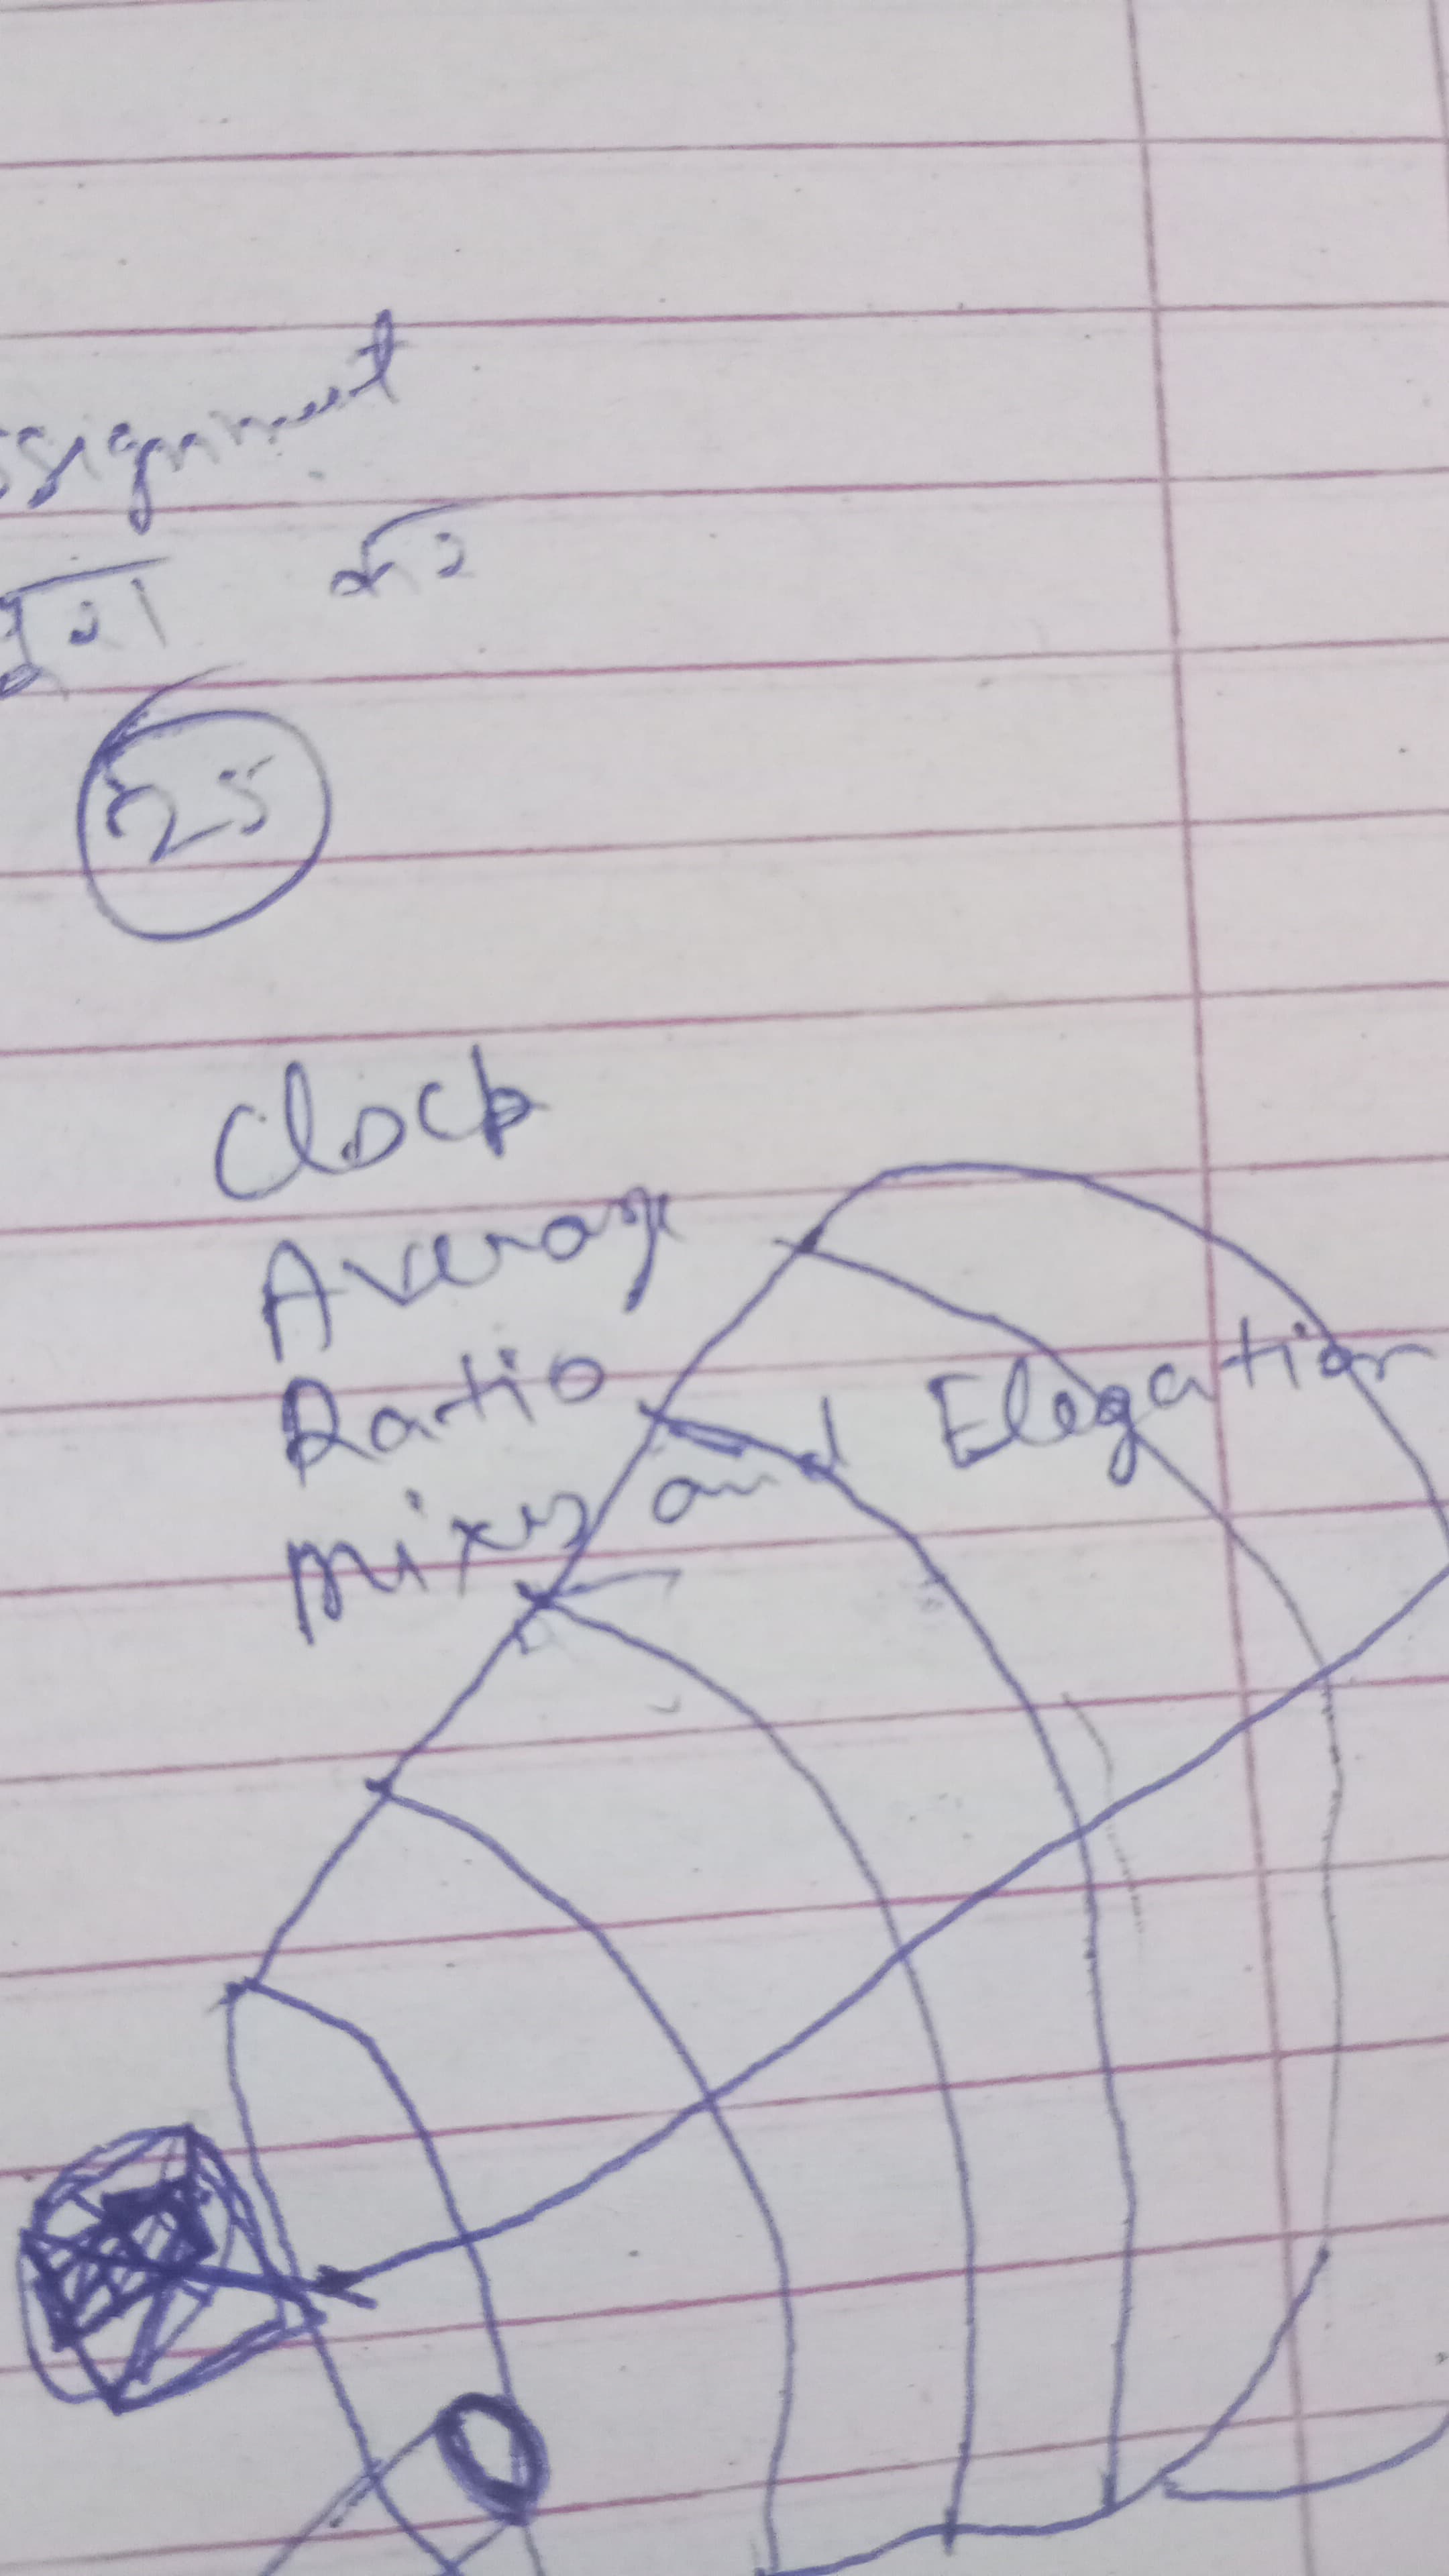 ssignment
पूरा कर
25
Clock
Average
Ratio
mixs and Elegation